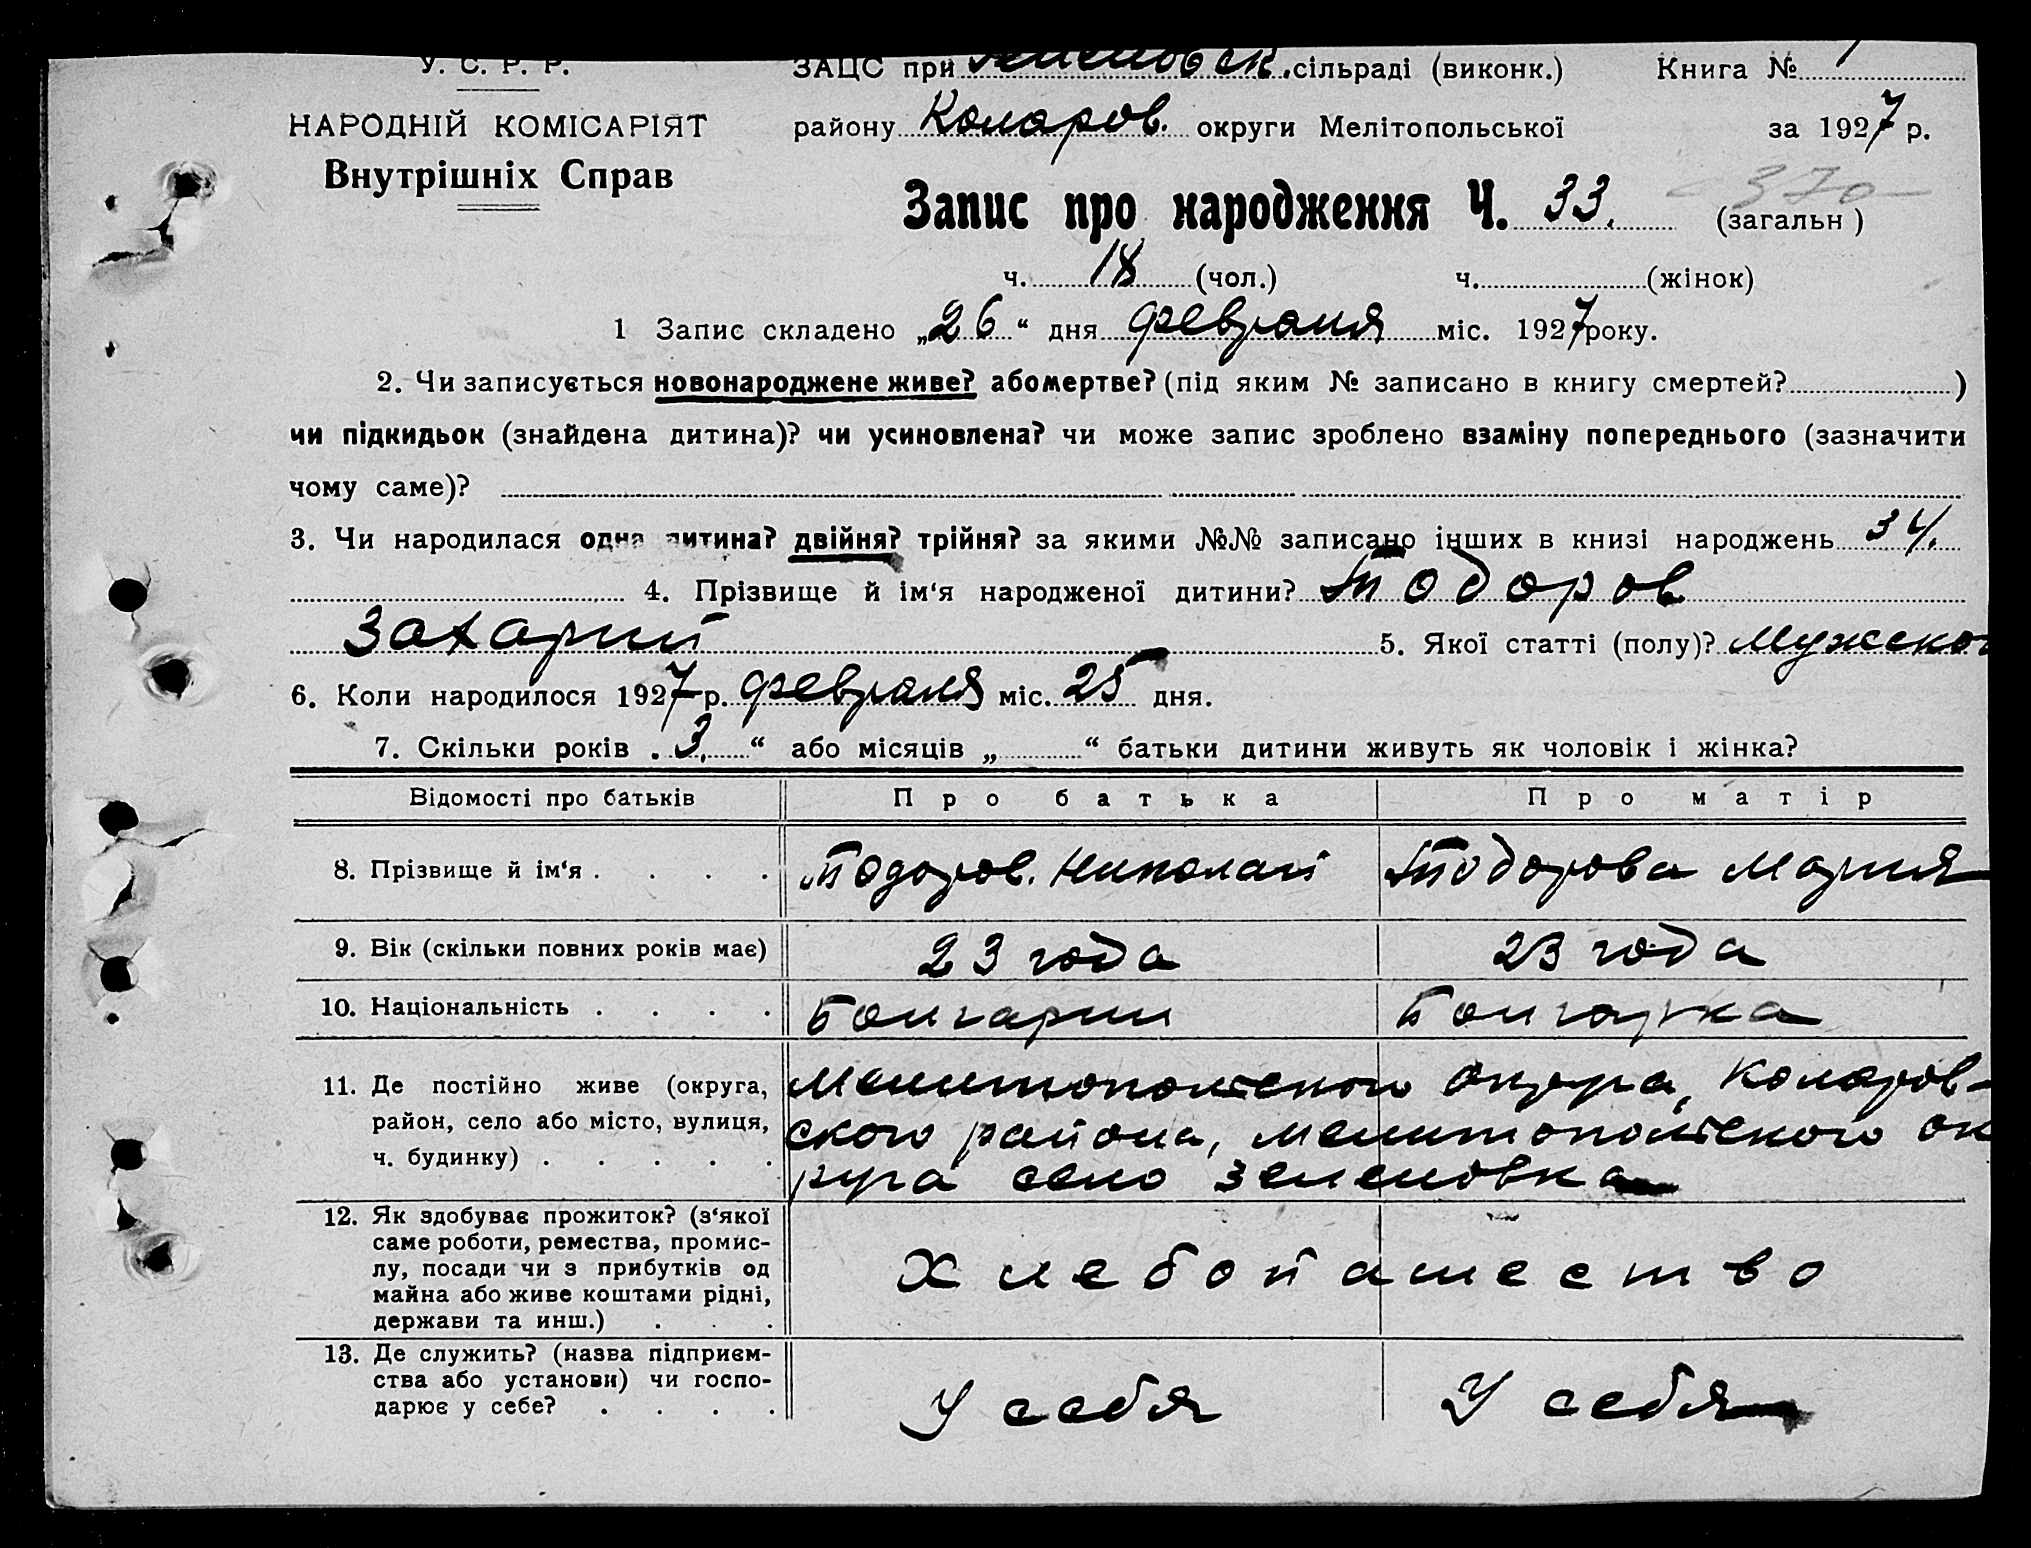 У. С. Р. Р.
НАРОДНІЙ КОМІСАРІЯТ
Внутрішніх Справ
ЗАЦС при сільраді (виконк.) Книга №
району Коларов. округи Мелітопольської за 1927 р.
370
Запис про народження Ч. 33. (загальн)
ч. 18 (чол.) ч. (жінок)
1 Запис складено „26“ дня февраля міс. 1927 року.
2. Чи записується новонароджене живе? або мертве? (під яким № записано в книгу смертей? )
чи підкидьок (знайдена дитина)? чи усиновлена? чи може запис зроблено взаміну попереднього (зазначити
чому саме)?
3. Чи народилася одна дитина? двійня? трійня? за якими №№ записано інших в книзі народжень 34.
4. Прізвище й ім‘я народженої дитини? Тодоров
Захарий 5. Якої статті (полу)? Мужеско
6. Коли народилося 1927 р. февраля міс. 25 дня.
7. Скільки років . 3. “ або місяців „ “ батьки дитини живуть як чоловік і жінка?
Відомості про батьків Про батька Про матір
8. Прізвище й ім‘я . . . . Тодоров. Николай Тодорова Мария
9. Вік (скільки повних років має) 23 года 23 года
10. Національність . . . . Болгарин Болгарка
11. Де постійно живе (округа,
район, село або місто, вулиця,
ч. будинку) . . . . .
Мелитопольского округа, Коларов-
ского района, мелитопольского ок
руга село Зеленовка
12. Як здобуває прожиток? (з‘якої
саме роботи, ремества, промис-
лу, посади чи з прибутків од
майна або живе коштами рідні,
держави та инш.) . . .
Хлебопашество
13. Де служить? (назва підприєм-
ства або установи) чи госпо-
дарює у себе? . . . .
У себя У себя